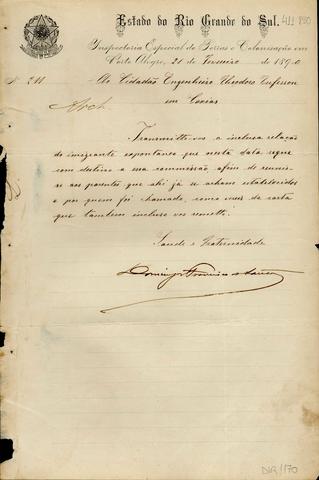 Estado do Rio Grande do Sul.
411-890
Inspectoria Especial de Terras e Colonisação em
Porto Alegre, 21 de Fevereiro de 1890
Nº 211 Ao Cidadão Engenheiro
Arch em Caxias
Transmitto-vos a inclusa relação
do imigrante espontaneo que nesta data segue
com destino a essa commissão, afim de reunir-
se aos parentes que ahi já se acham estabelecidos
e por quem foi chamado, como vereis da carta
que tambem inclusa vos remetto.
Saude e Fraternidade
Domingos
DIR/170